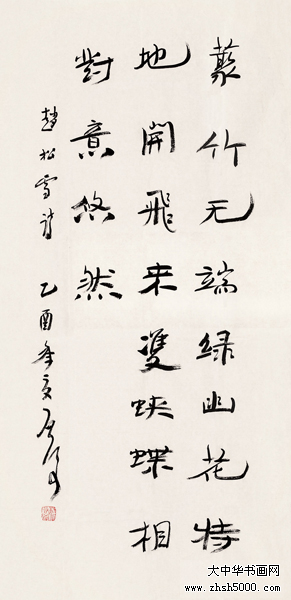 藂竹无端绿幽花特
地開飛来雙蛱蝶相
對意悠然
趙松雪詩 乙酉年夏
大中华书画网
www.zhsh5000.com